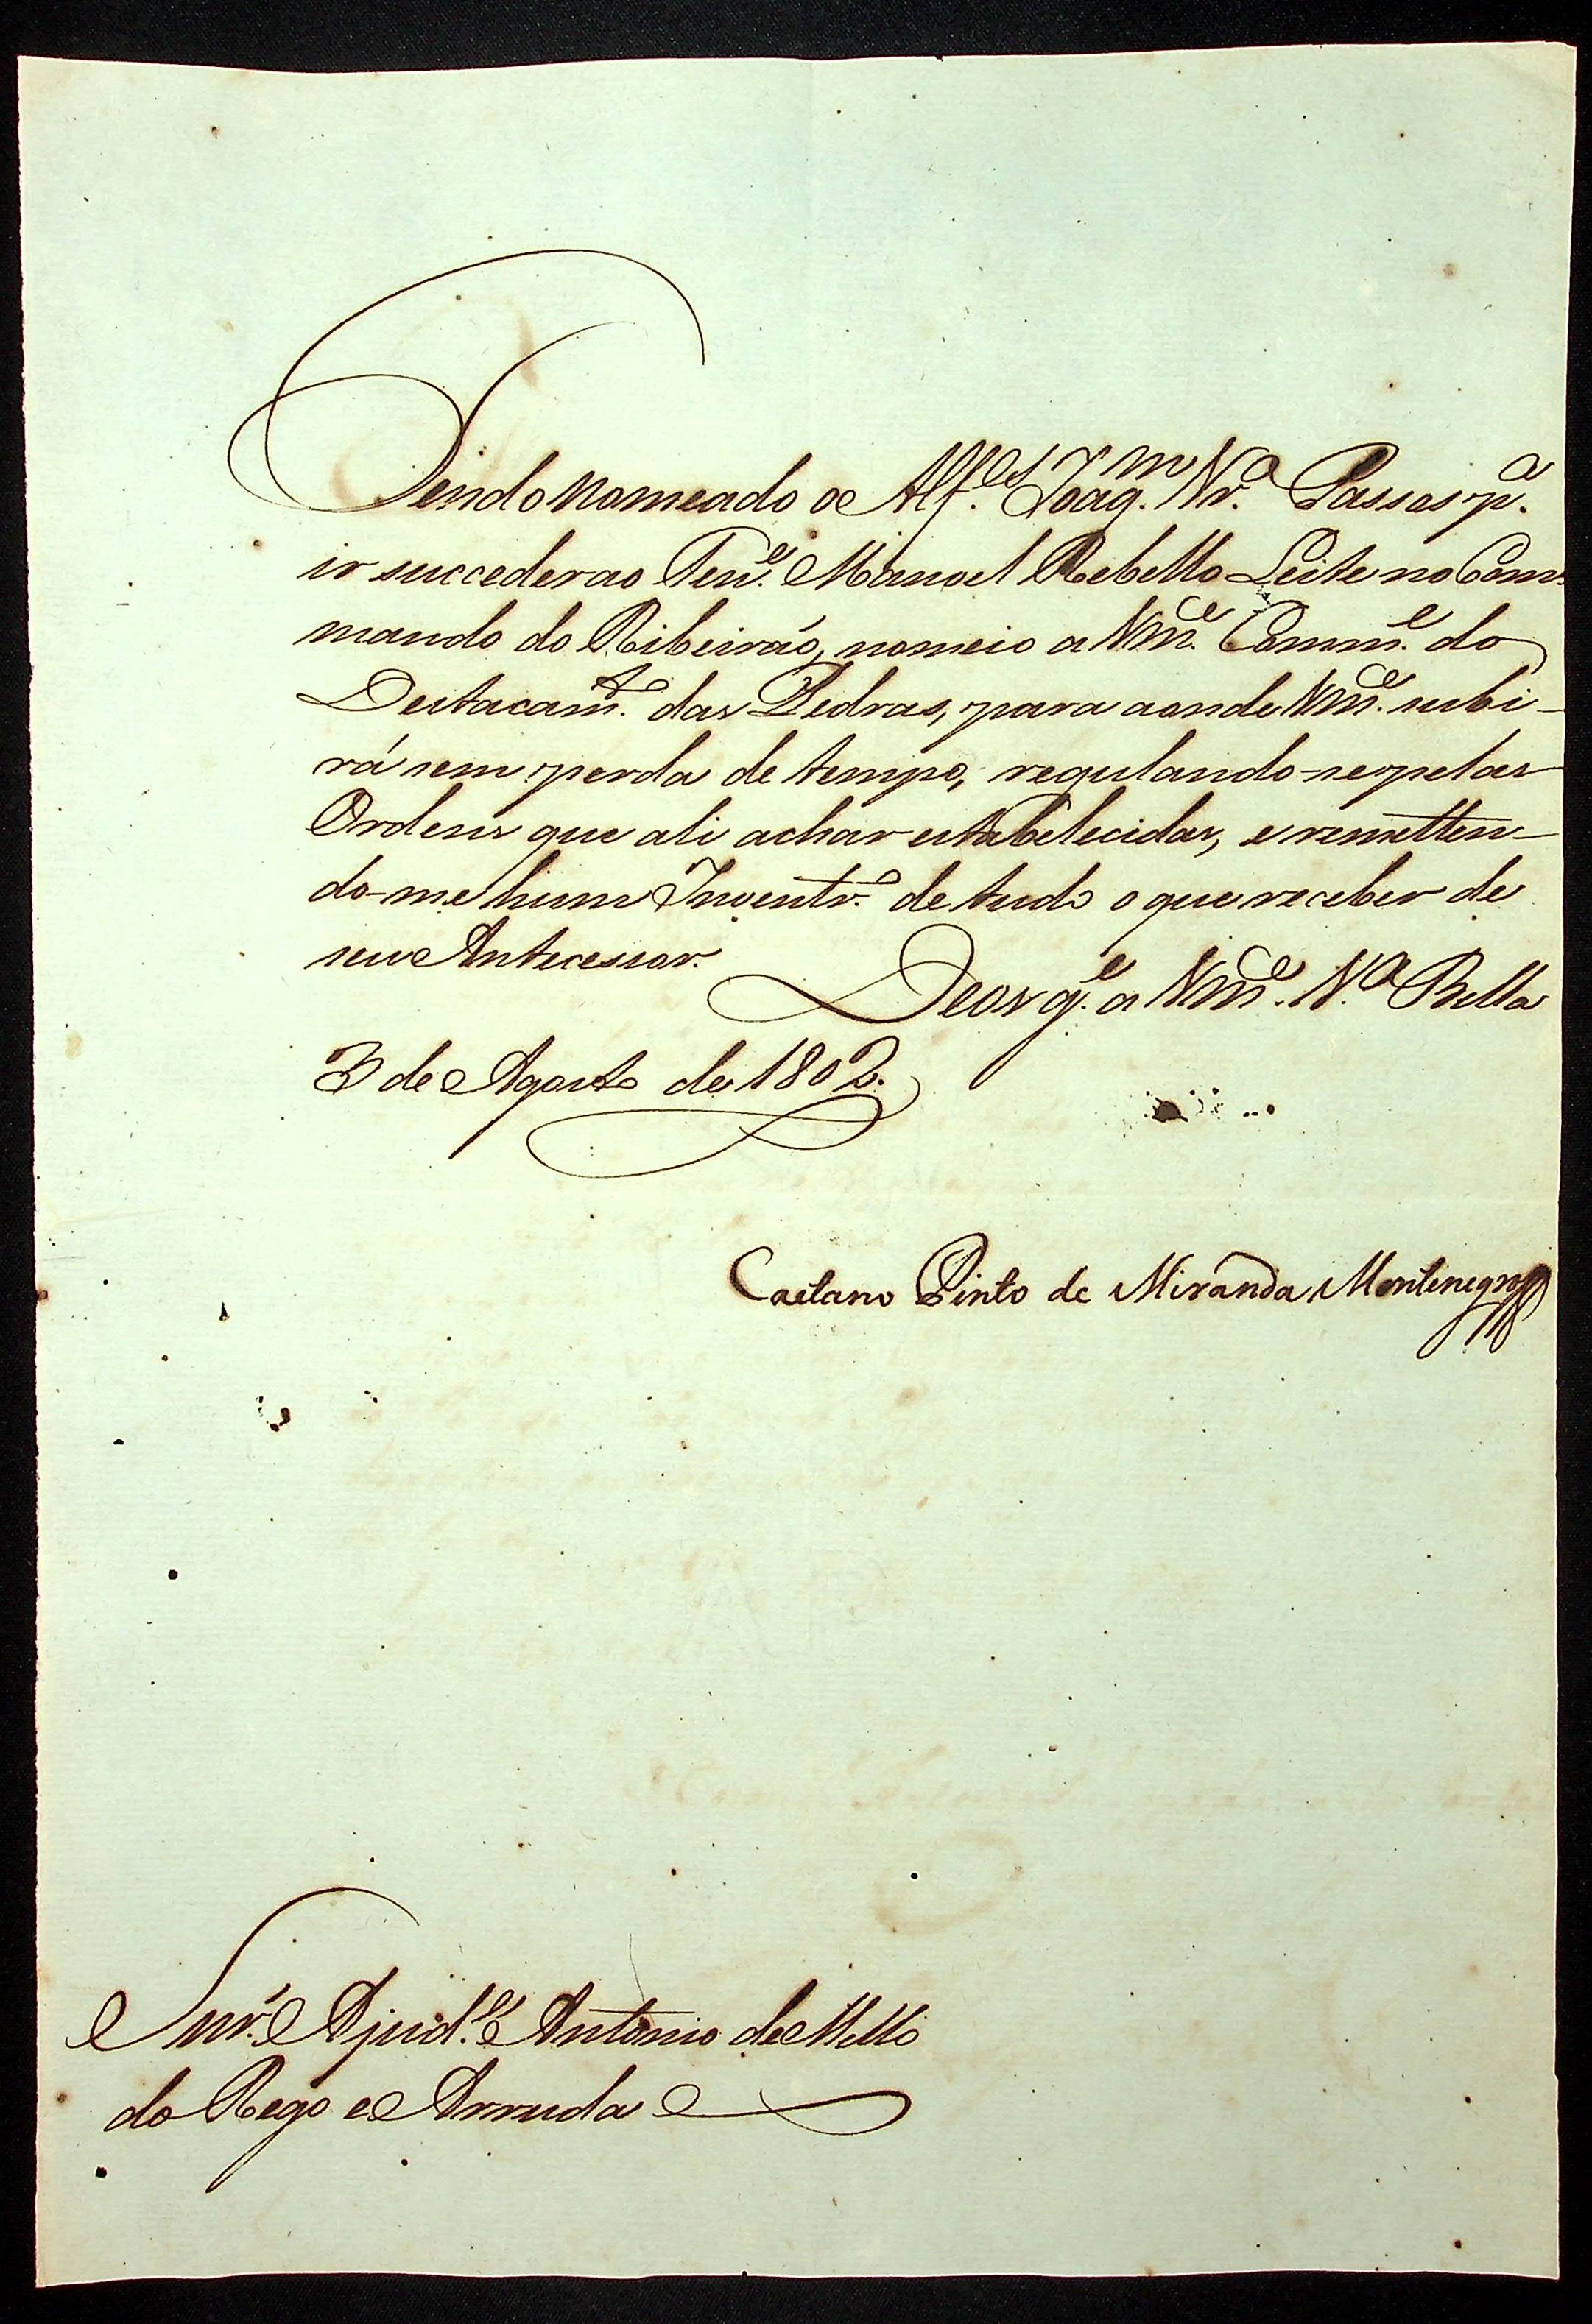 Tendo nomeado o Alf.es Joaq.m Vr.a Passos p.a
ir succeder ao Ten.e Manoel Rebello Leite no Com-
mando do Ribeiraõ, nomeio a Vm.ce Comm.e do
Destacam.to das Pedras, para aonde Vm.ce subi-
rá sem perda de tempo, regulando-se pelas
Ordens que ali achar estabelecidas, e remetten-
do-me hum Inventr.o de tudo o que receber de
seu Antecessor.
Deos g.e a Vm.ce V.a Bella
3 de Agosto de 1802.
Caetano Pinto de Miranda Montenegro
Snr. Ajud.e Antonio de Mello
do Rego e Arruda